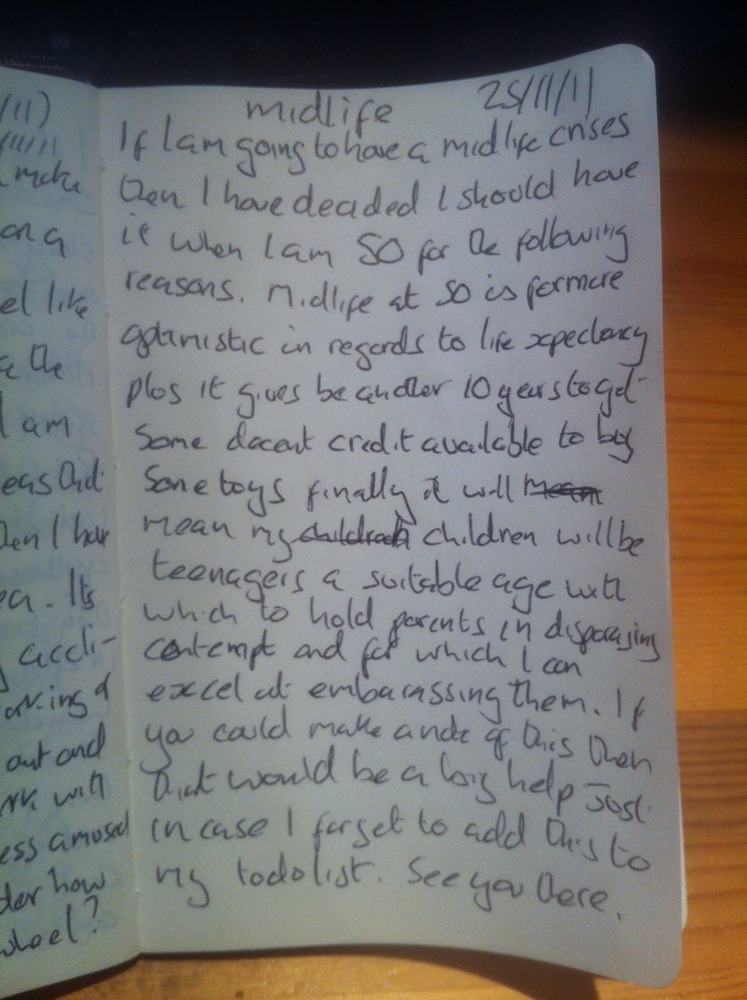 /11)
/11/11
make
on a
el like
the
I am
eas that
then I have
ea. Its
accli-
orking of
out and
ork with
ess amused
der how
wheel?
midlife 25/11/11
If I am going to have a midlife crises
then I have decided I should have
it when I am 50 for the following
reasons. Midlife at 50 is far more
optimistic in regards to life xpectancy
plus it gives be another 10 years to get
some decent credit available to buy
some toys finally it will mean
mean my children children will be
teenagers a suitable age with
which to hold parents in disparasing
contempt and for which I can
excel at embarassing them. If
you could make a note of this then
that would be a big help just
in case I forget to add this to
my todo list. See you there.